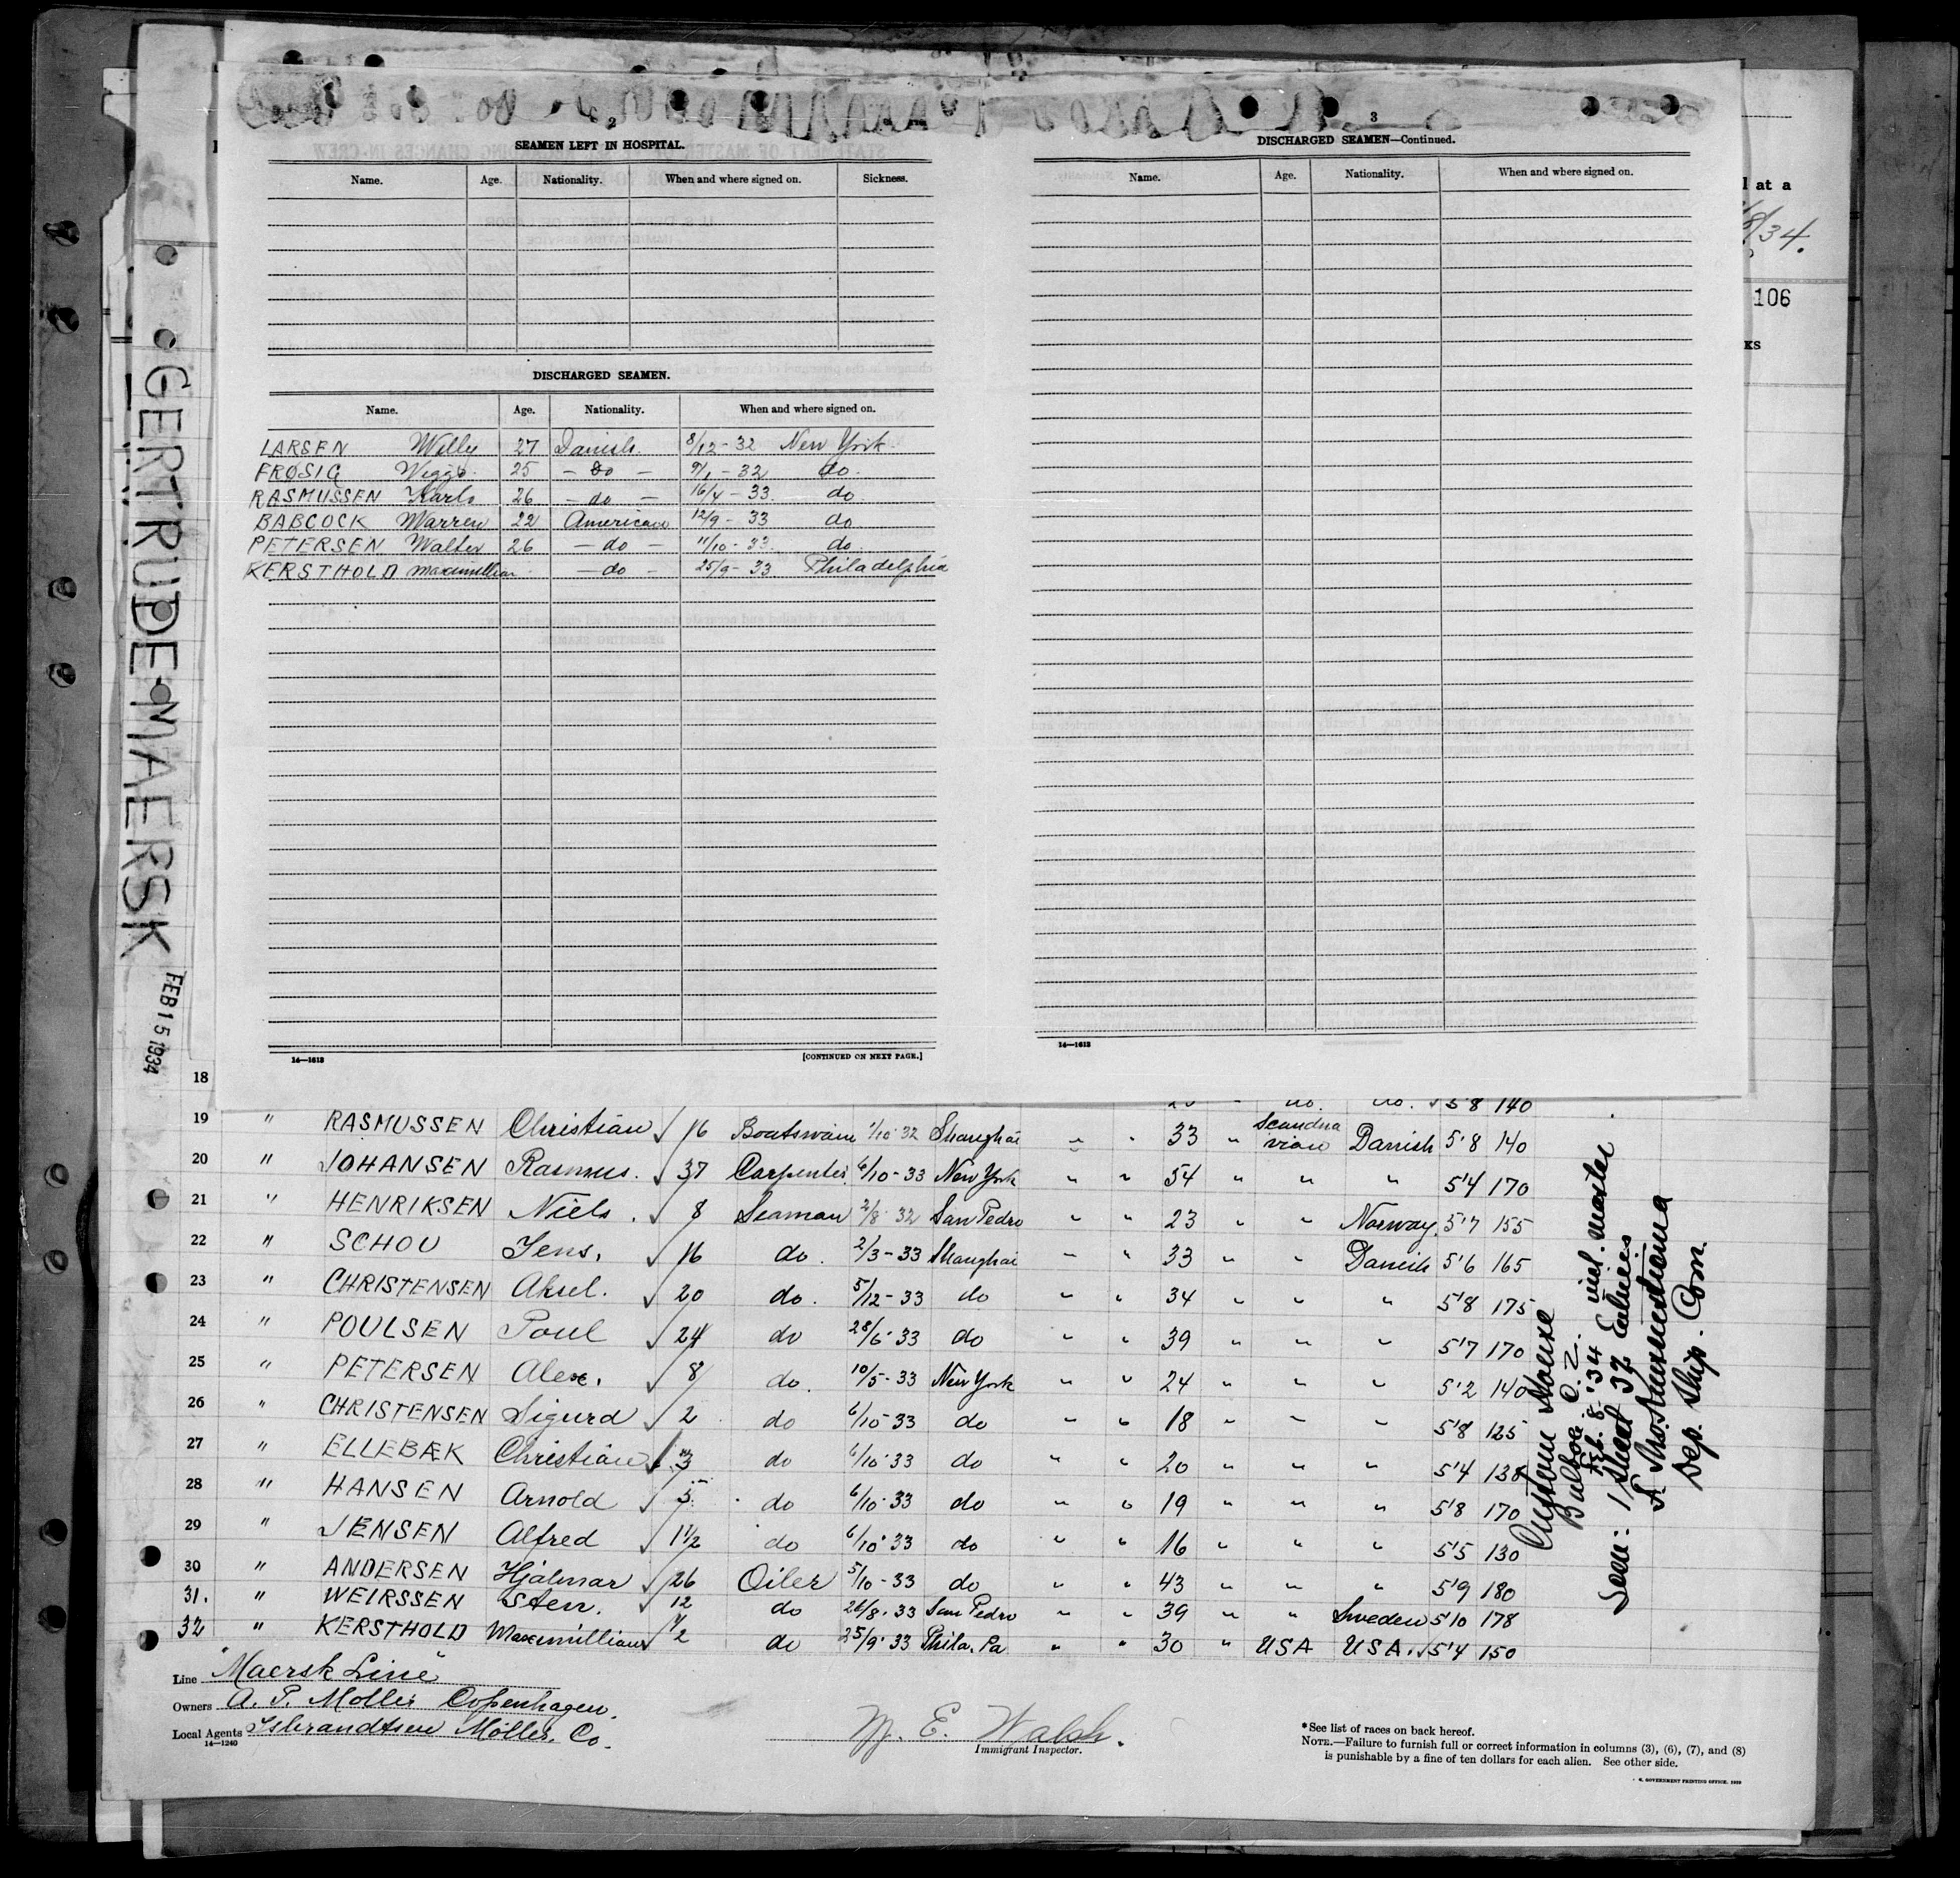 2
SEAMEN LEFT IN HOSPITAL.
Name. Age. Nationality. When and where signed on. Sickness.
DISCHARGED SEAMEN.
Name. Age. Nationality. When and where signed on.
LARSEN Willy 27 Danish. 8/12-32 New York.
FRØSIG Viggo. 25 - do - 9/1-32 do.
RASMUSSEN Karlo 26 - do - 16/4-33. do
BABCOCK Warren 22 American 12/9-33 do
PETERSEN Walter 26 - do - 11/10-33. do.
KERSTHOLD Maximillian - do - 25/9-33 Philadelphia
14—1613 [CONTINUED ON NEXT PAGE.]
3
DISCHARGED SEAMEN—Continued.
Name. Age. Nationality. When and where signed on.
14—1613
l at a
/34.
106
KS
GERTRUDE MAERSK
FEB 15 1934
18 do. do. 5'8 140
19 " RASMUSSEN Christian √ 16 Boatswain 1/10 32 Shanghai " " 33 " Scandinavian Danish 5'8 140
20 " JOHANSEN Rasmus. √ 37 Carpenter 6/10-33 New York " " 54 " " " 5'4 170
21 " HENRIKSEN Niels. √ 8 Seaman 2/8 32 San Pedro " " 23 " " Norway. 5'7 155
22 " SCHOU Jens. √ 16 do. 2/3-33 Shanghai " " 33 " " Danish 5'6 165
23 " CHRISTENSEN Aksel. √ 20 do. 5/12-33 do " " 34 " " " 5'8 175
24 " POULSEN Poul √ 24 do 28/6-33 do " " 39 " " " 5'7 170
25 " PETERSEN Alex. √ 8 do. 10/5-33 New York " " 24 " " " 5'2 140
26 " CHRISTENSEN Sigurd √ 2 do 6/10-33 do " " 18 " " " 5'8 125
27 " ELLEBÆK Christian √ 3 do 6/10-33 do " " 20 " " " 5'4 138
28 " HANSEN Arnold √ 5 do 6/10-33 do " " 19 " " " 5'8 170
29 " JENSEN Alfred √ 1 1/2 do 6/10-33 do " " 16 " " " 5'5 130
30 " ANDERSEN Hjalmar √ 26 Oiler 5/10-33 do " " 43 " " " 5'9 180
31. " WEIRSSEN Sten. √ 12 do 26/8-33 San Pedro " " 39 " " Sweden 5'10 178
32 " KERSTHOLD Maximillian √ 1/2 do 25/9-33 Phila. Pa " " 30 " USA USA. √ 5'4 150
Custom House
Balboa C. Z.
Feb. 8. '34
Seen: 1 sheet 32 Entries incl. Master
Dep. Ship. Com.
Line "Maersk Line"
Owners A. P. Moller Copenhagen.
Local Agents Isbrandtsen Moller. Co.
14—1240
M. E. Walsh.
Immigrant Inspector.
*See list of races on back hereof.
NOTE.—Failure to furnish full or correct information in columns (3), (6), (7), and (8)
is punishable by a fine of ten dollars for each alien. See other side.
GOVERNMENT PRINTING OFFICE. 1929